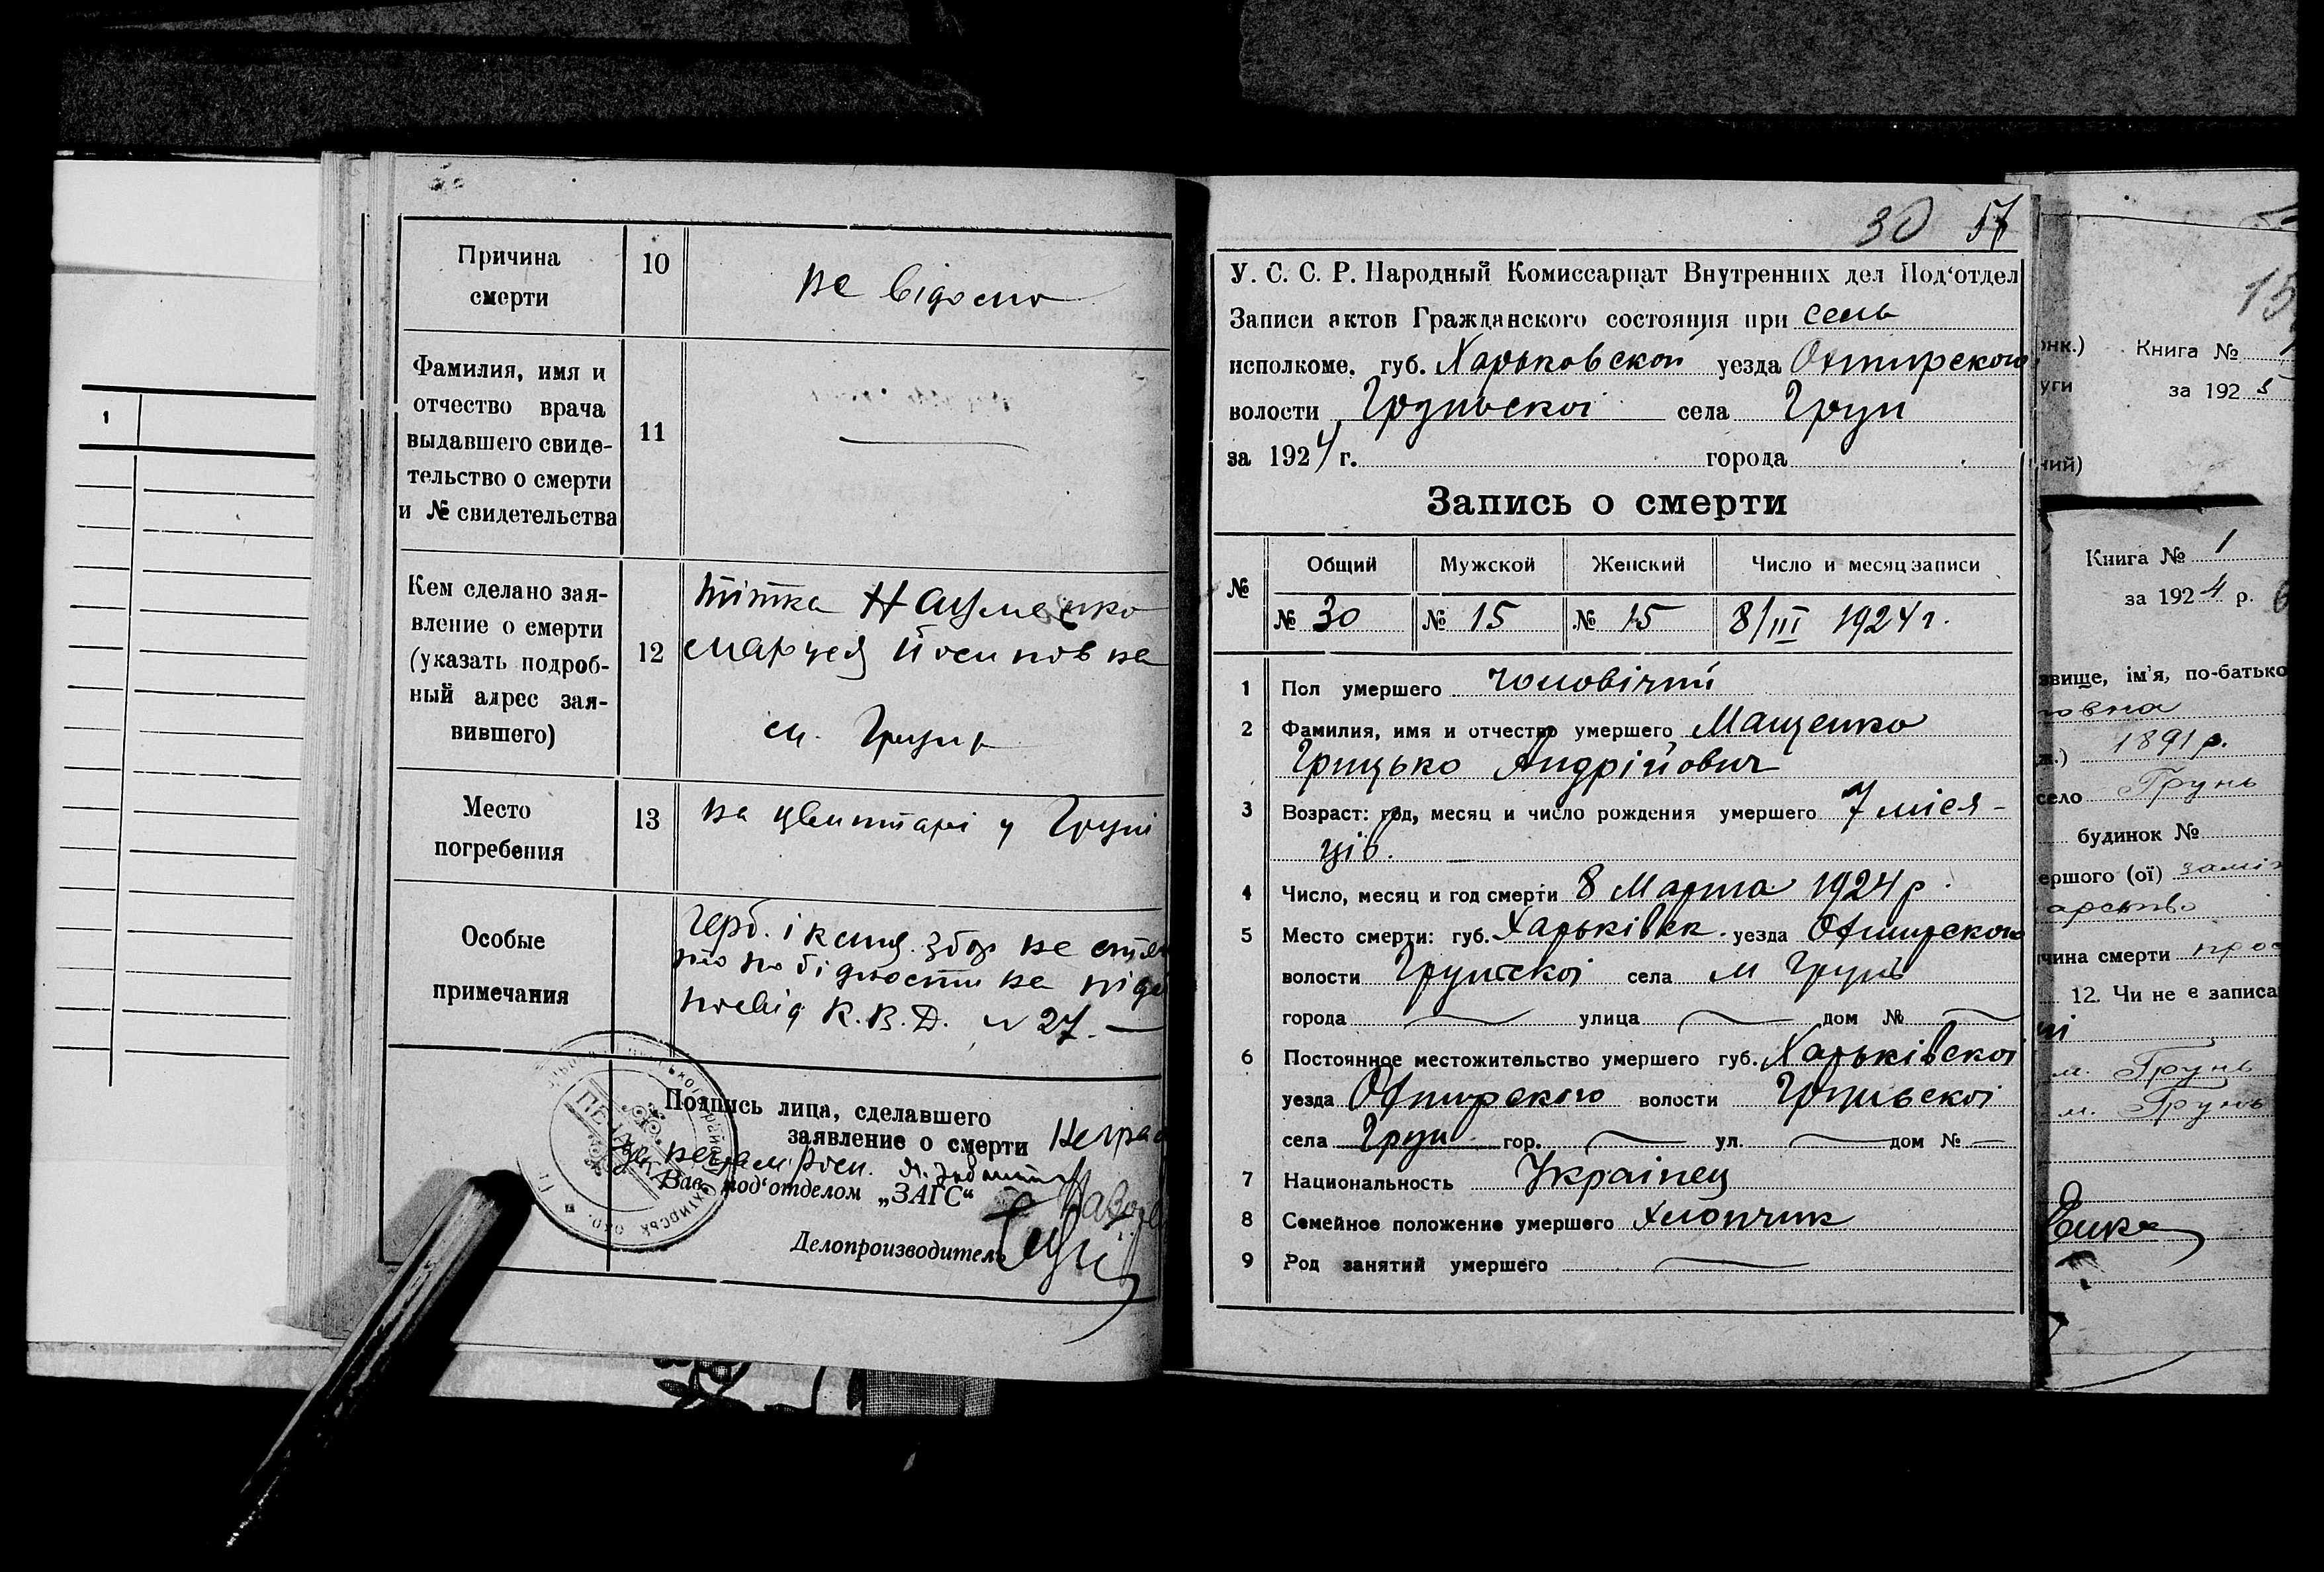 1
Причина
смерти
10
не відомо
Фамилия, имя и
отчество врача
выдавшего свиде-
тельство о смерти
и № свидетельства
11
Кем сделано зая-
вление о смерти
(указать подроб-
ный адрес зая-
вившего)
12
тітка Науменко
Маруся Йосиповна
м. Грунь
Место
погребения
13
на цвинтарі у Груні
Особые
примечания
герб. і канц. збор не
по бідности на
К.В.Д. № 27. —
Подпись лица, сделавшего
заявление о смерти
Зав. под'отделом „ЗАГС“
Делопроизводитель
ПЕЧАТКА
30 57
У. С. С. Р. Народный Комиссариат Внутренних дел Под'отдел
Записи актов Гражданского состояния при сель
исполкоме. губ. Харьковской уезда Охтирского
волости Груньскоі села Грунь
за 1924 г. города
Запись о смерти
№ Общий Мужской Женский Число и месяц записи
№ 30 № 15 № 15 8/III 1924 г.
1 Пол умершего чоловічий
2 Фамилия, имя и отчество умершего Мащенко
Грицько Андрійович
3 Возраст: год, месяц и число рождения умершего 7 міся-
ців.
4 Число, месяц и год смерти 8 Марта 1924 р.
5 Место смерти: губ. Харьківск. уезда Охтирского
волости Груньскоі села м Грунь
города улица дом №
6 Постоянное местожительство умершего губ. Харьківскоі
уезда Охтирского волости Груньскоі
села Грунь гор. ул. дом № —
7 Национальность Українец
8 Семейное положение умершего хлопчик
9 Род занятий умершего
онк.) Книга №
уги за 1925
ний)
Книга № 1
за 1924 р.
звище, ім'я, по-батько
овна
ж.) 1891 р.
село Грунь
будинок №
ершого (ої) замі
арство
чина смерти
12. Чи не є записа
м. Грунь
м. Грунь